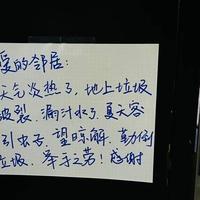 爱的邻居:
天气炎热了,地上垃圾
破裂,漏汁水了,夏天容
引虫子,望晾解,勤倒
垃圾,举手之劳!感谢